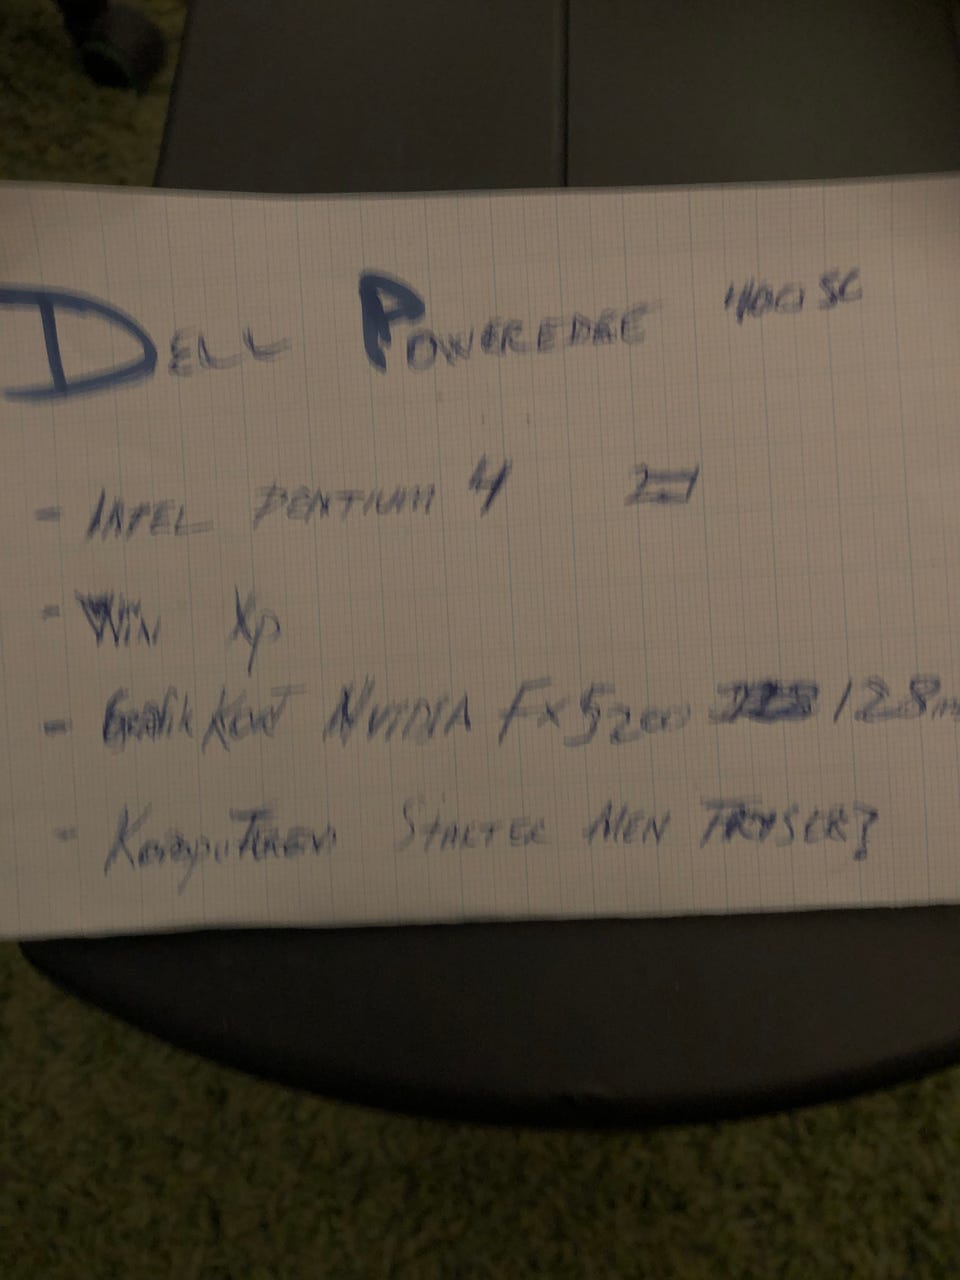 DELL POWEREDGE 400SC
- INTEL PENTIUM 4
- WIN XP
- Grafik Kort NVIDIA FX5200 128m
- KomputEREN STARTER MEN FRYSER?